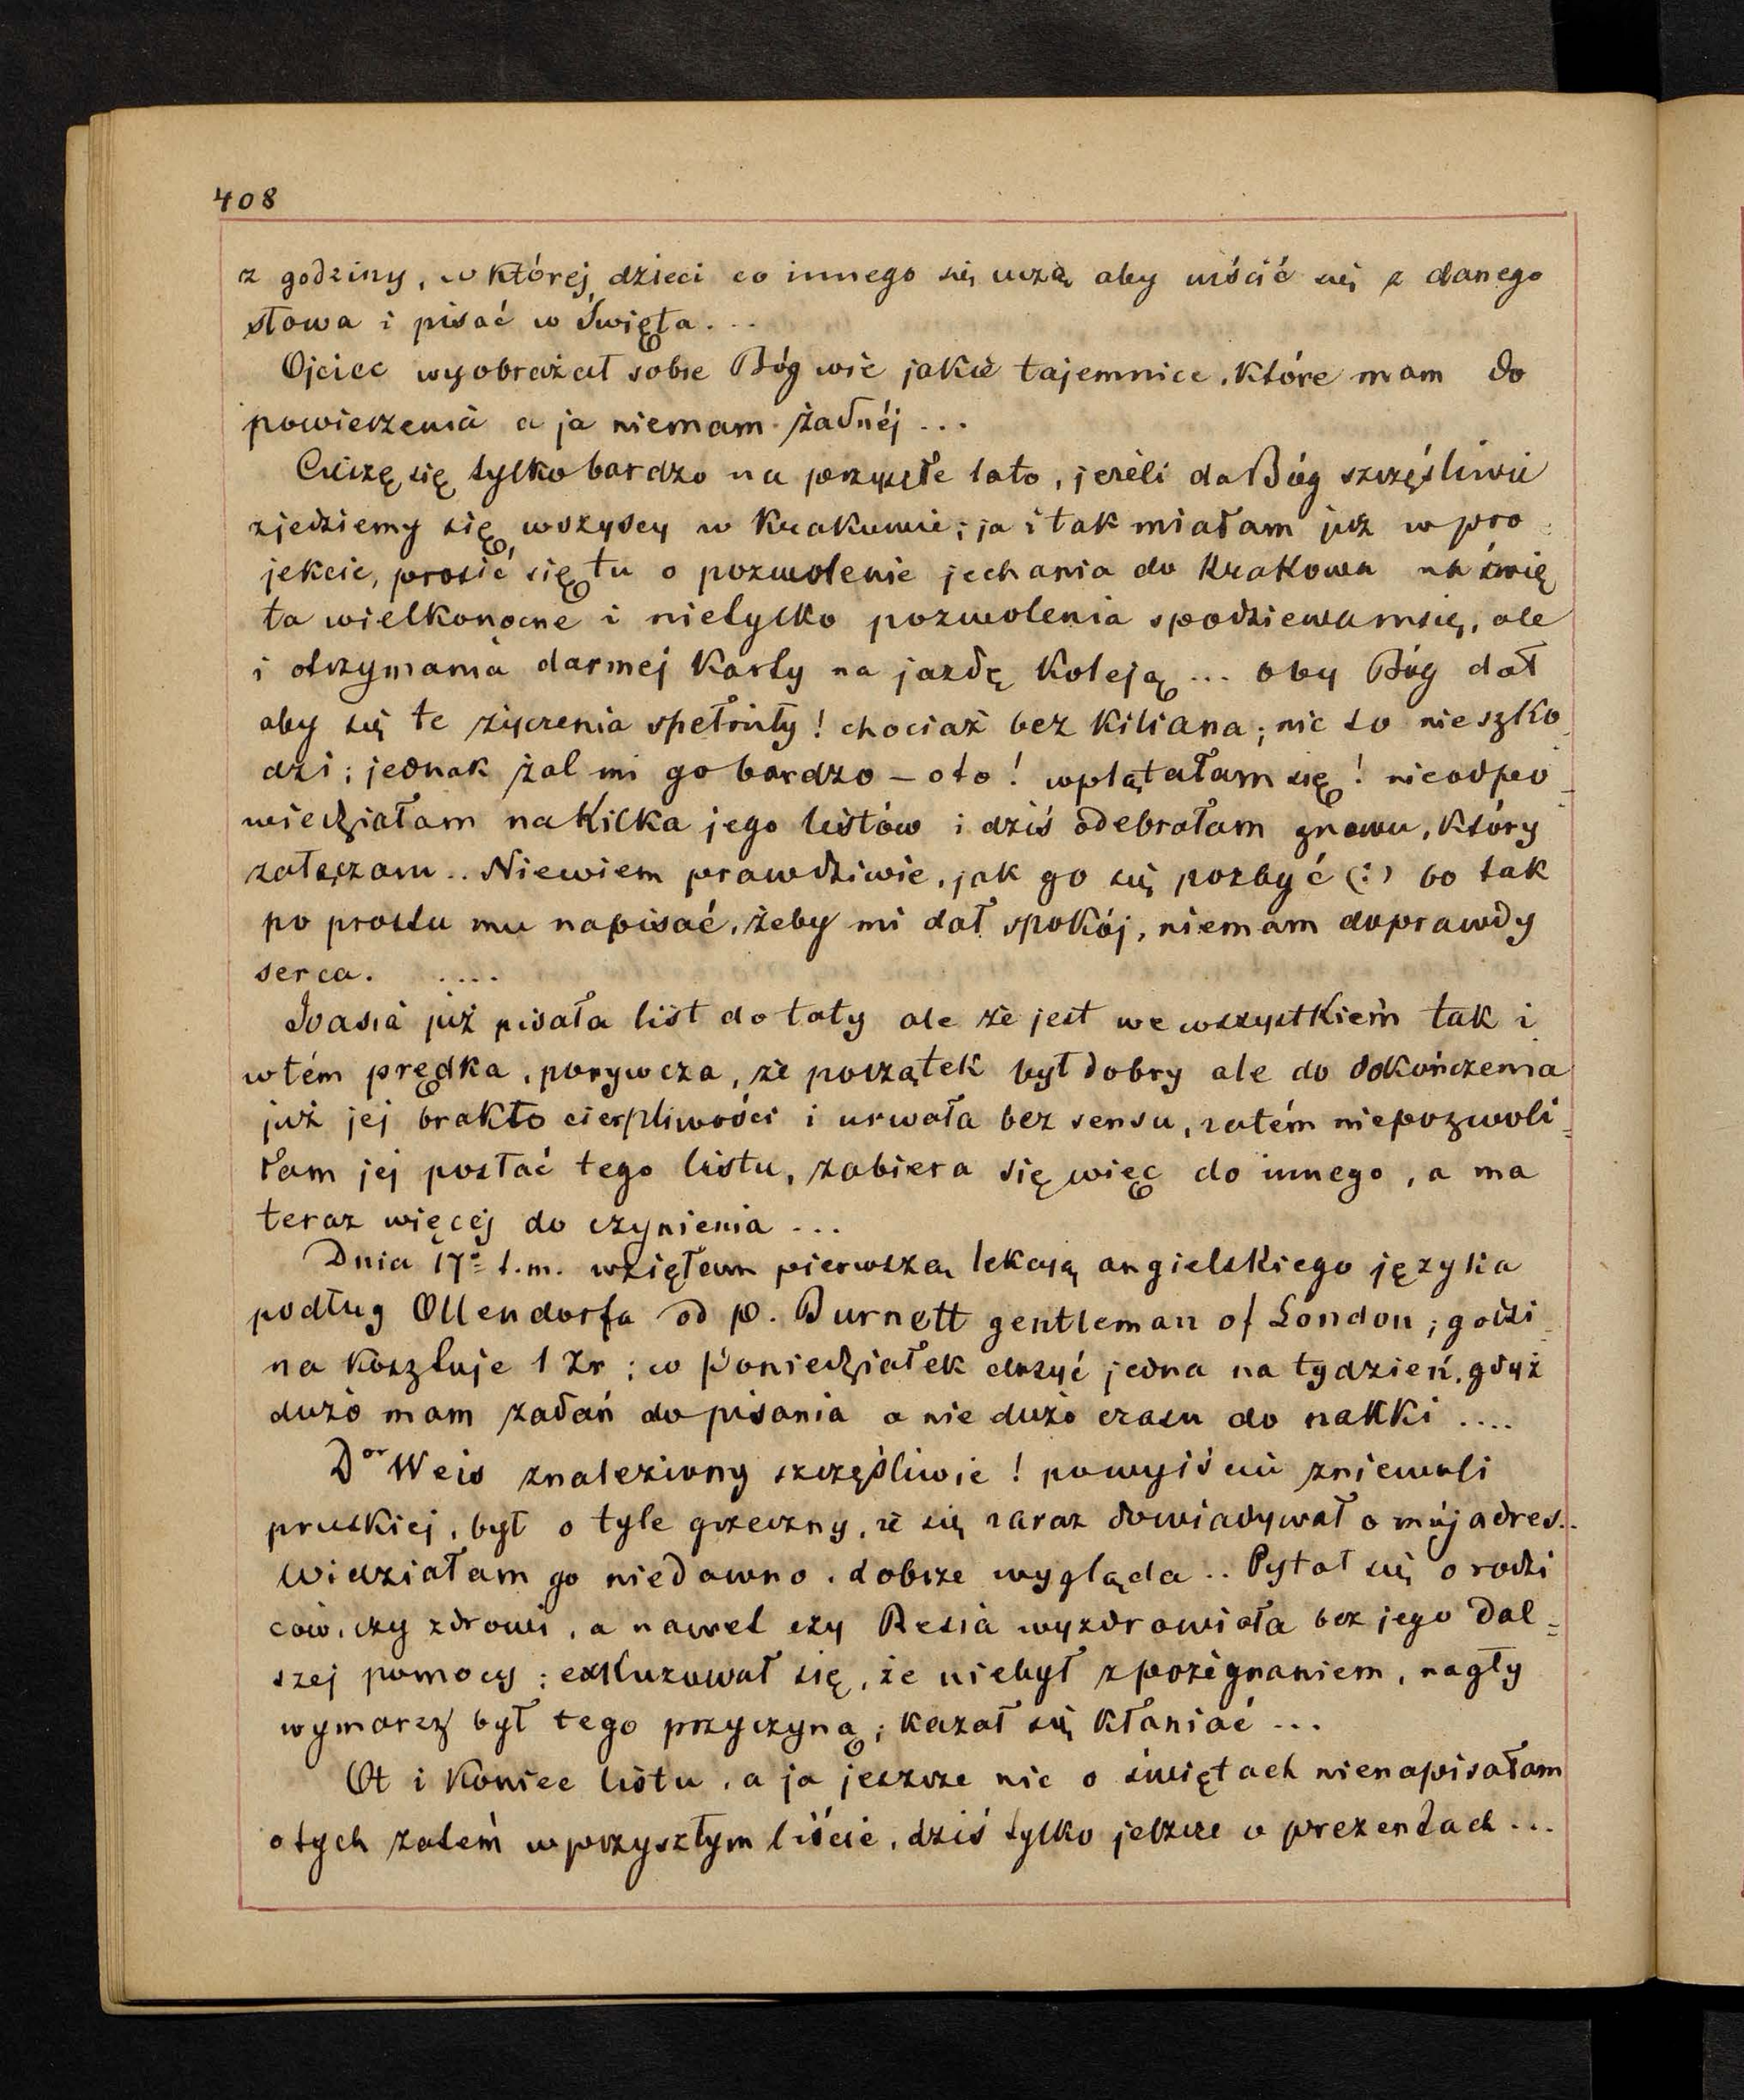 408
z godziny, w której dzieci co innego się uczą aby uiścić się z danego
słowa i pisać w Święta...
Ojciec wyobrażał sobie Bóg wie jakie tajemnice, które mam do
powierzenia a ja niemam żadnéj...
Cieszę się tylko bardzo na przyszłe lato, jeżeli da Bóg szczęśliwie
zjedziemy się wszyscy w Krakowie; ja i tak miałam już w pro
jekcie, prosić się tu o pozwolenie jechania do Krakowa na świę
ta wielkonocne i nietylko pozwolenia spodziewamsię, ale
i otrzymania darmej Karty na jazdę Koleją... oby Bóg dał
aby się te życzenia spełniły! chociaż bez Kiliana; nic to nie szko
dzi; jednak żal mi go bardzo – oto! wplątałam się! nieodpo
wiedziałam na Kilka jego listów i dziś odebrałam znowu, który
załączam.. Niewiem prawdziwie, jak go się pozbyć (:) bo tak
po prostu mu napisać, żeby mi dał spokój, niemam doprawdy
serca. ....
Joasia już pisała list do taty ale że jest we wszystkiem tak i
wtém prędka, porywcza, że początek był dobry ale do dokończenia
już jej brakło cierpliwości i urwała bez sensu, zatém niepozwoli=
łam jej posłać tego listu, zabiera się więc do innego, a ma
teraz więcej do czynienia...
Dnia 17º t.m. wzięłam pierwszą lekcyą angielskiego języka
podług Ollendorfa od p. Burnett gentleman of London; godzi
na Kosztuje 1 Zr; w Poniedziałek dosyć jedna na tydzień, gdyż
dużo mam zadań do pisania a nie dużo czasu do nauki ....
Dor Weis znaleziony szczęśliwie! po wyjściu zniewoli
pruskiej, był o tyle grzeczny, że się zaraz dowiadywał o mój adres..
Widziałam go niedawno, dobrze wygląda.. Pytał się o rodzi
ców, czy zdrowi, a nawet czy Resia wyzdrowiała bez jego dal=
szej pomocy; exkuzował się, że niebył z pożegnaniem, nagły
wymarsz był tego przyczyną; Kazał się Kłaniać...
Ot i Koniec listu, a ja jeszcze nic o świętach nienapisałam
o tych zatém w przyszłym liście, dziś tylko jeszcze o prezentach...